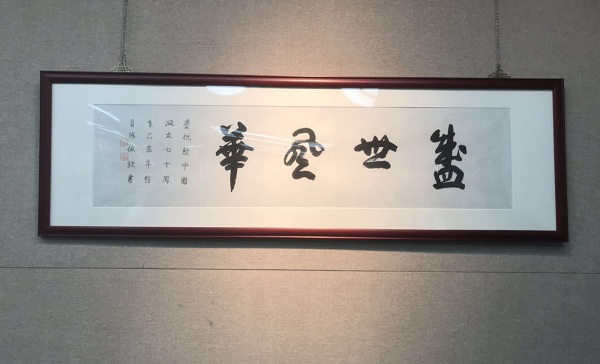 盛世風華
慶祝新中國
成立七十周
年己亥年
陳佩秋書